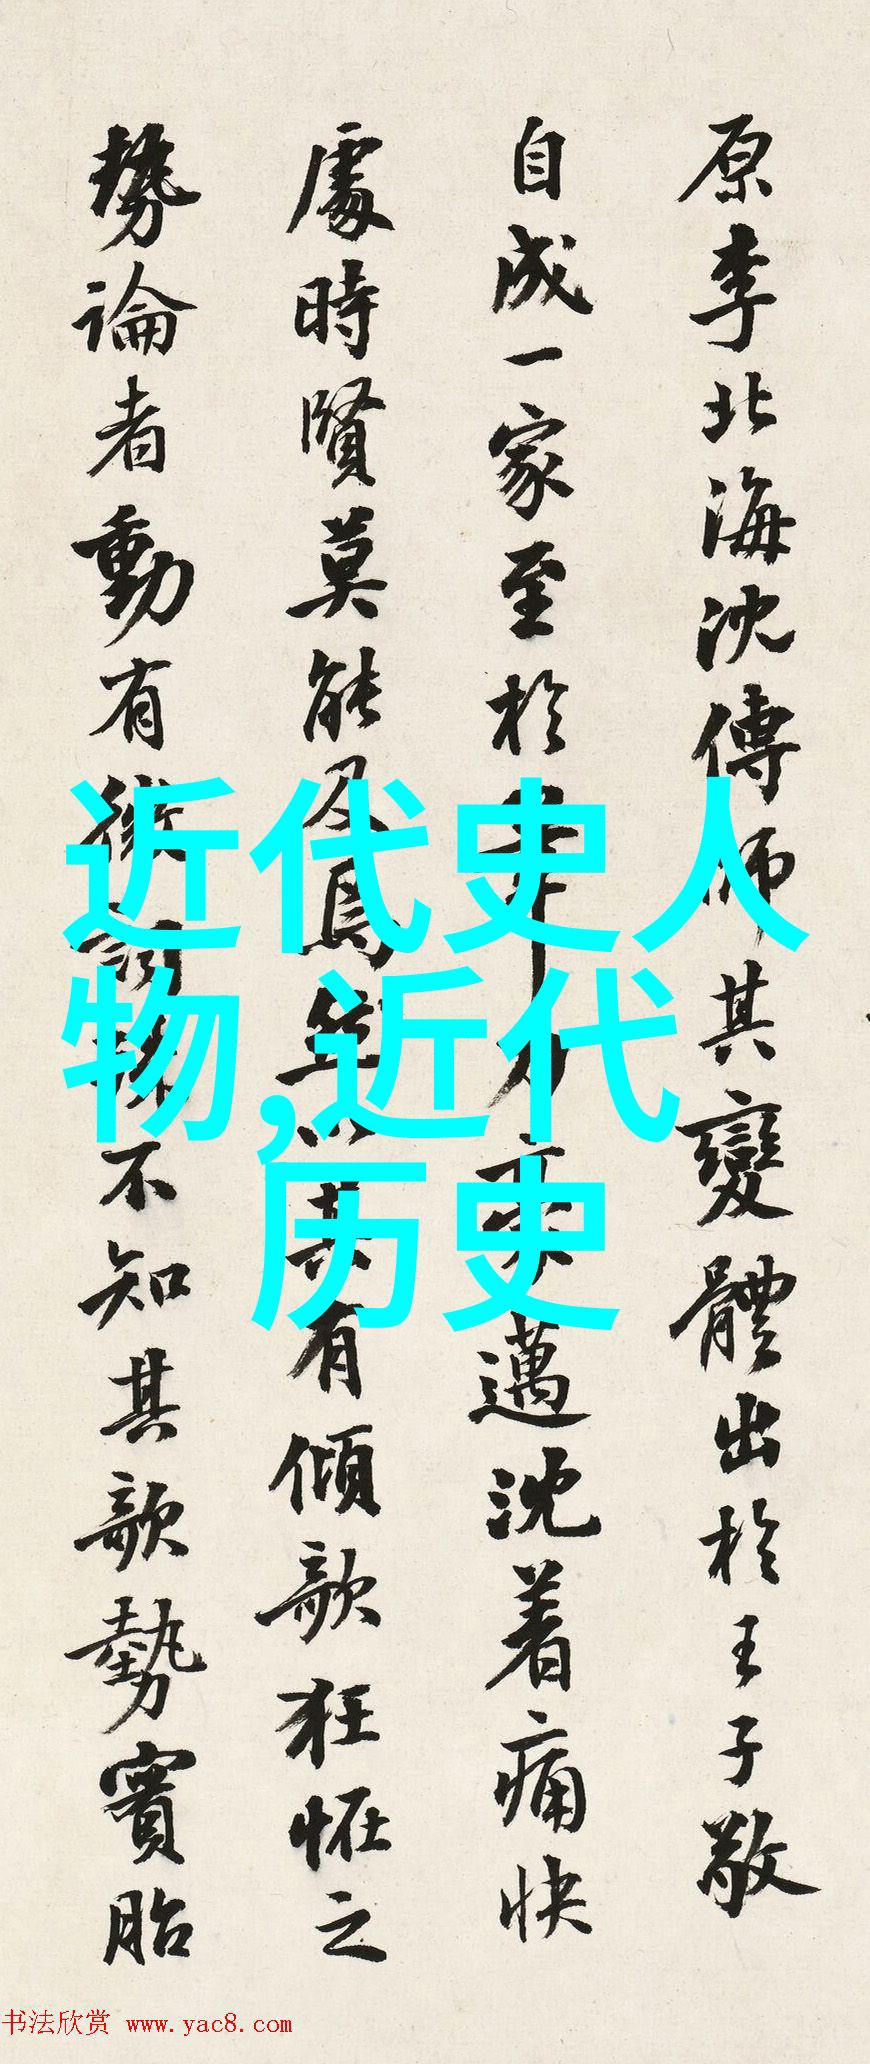 原李北海沈傳師其變體出於王子敬
自成一家至於 邁沈着痛快
處時賢莫能及 其有傾欹狂怪之
勢論者動有 不知其欹勢實胎
近代史人
物,近代
历史
书法欣赏 www.yac8.com